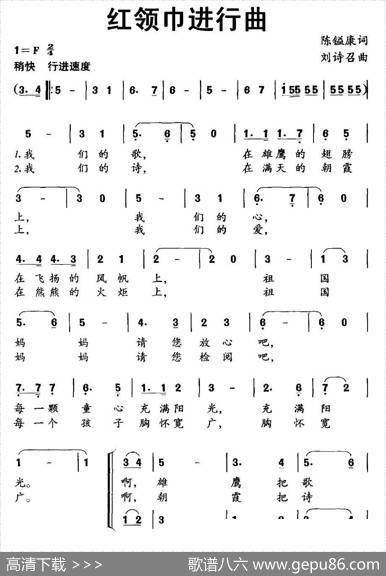 红领巾进行曲
1=F 2/4
陈镒康词
稍快 行进速度
刘诗召曲
(3.4 | 5 - | 3 1 | 5 - | 3 1 | i555 55 | i555 55) |
5 - | 3 1 | 5. 6 | 5 0 | 1.1 1 1 | 7. 6 |
1.我 们的 歌, 在雄鹰的 翅膀
2.我 们的 诗, 在满天的 朝霞
3 - | 3 0 | 5 - | 3 1 | 6. 7 | 6 0 |
上, 我 们的 心,
上, 我 们的 爱,
4.4 4.3 | 2 1 2 | 2 - | 2 0 | 3 - | 1 3 |
在飞扬的 风帆 上, 祖 国
在熊熊的 火炬 上, 祖 国
5. 6 | 5 - | 4. 3 | 2 5 | 6 - | 6 0 |
妈 妈 请 您放心 吧,
妈 妈 请 您检阅 吧,
7. 7 7 | 6. 5 | 1. 1 2 | 3 | 2. 2 | 7 6 |
每一颗 童心 充满阳 光, 充满 阳
每一个 孩子 胸怀宽 广, 胸怀 宽
1 - | 1 (3 4) | 5 - | 3. 4 | 5 1 |
光。 啊, 雄 鹰 把歌
广。 啊, 朝 霞 把诗
高清下载 >>> 歌谱八六 www.gepu86.com